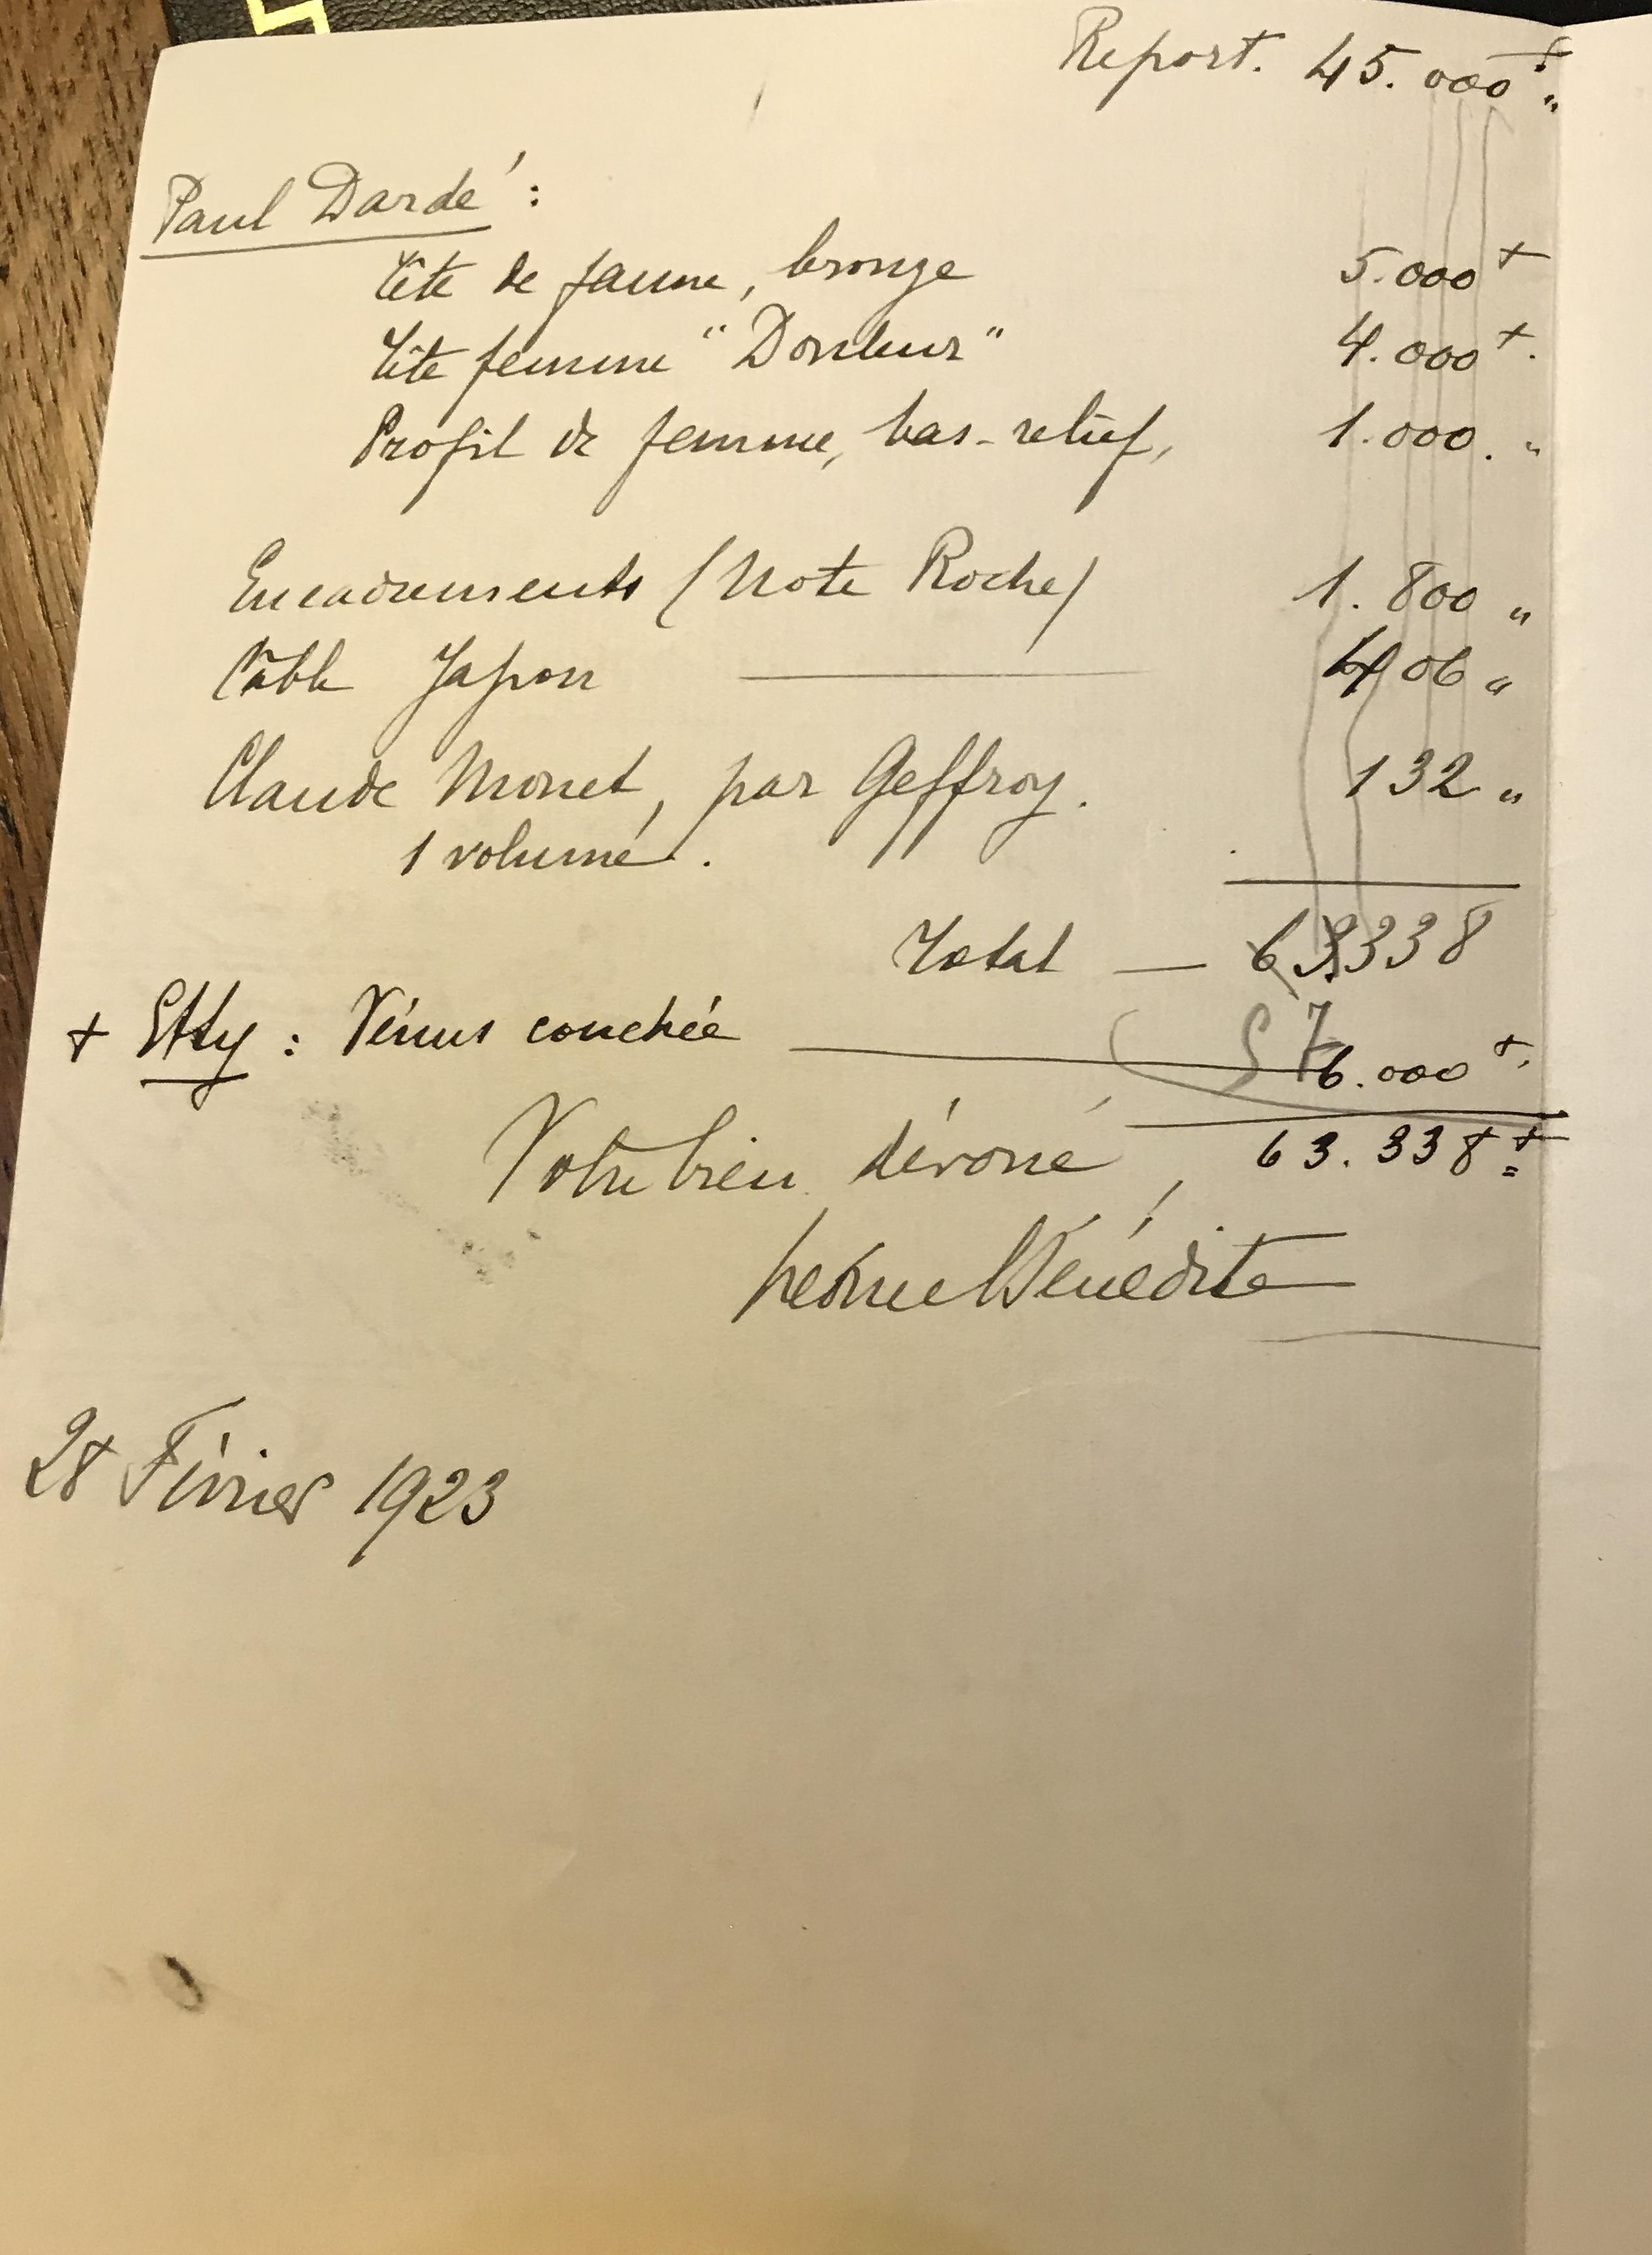 Report. 45.000 f "
Paul Dardé :
Tête de faune, bronze 5.000 +
Tête femme "Douleur" 4.000 +.
Profil de femme, bas-relief, 1.000. "
Encadrements (Note Roche) 1.800 "
Câble Japon — 406 "
Claude Monet, par Geffroy. 132 "
1 volume.
Total — 63338
57
+ Etty : Vénus couchée — 6.000 +.
63.338 +
Votre bien dévoué,
Léonce Bénédite
28 Février 1923